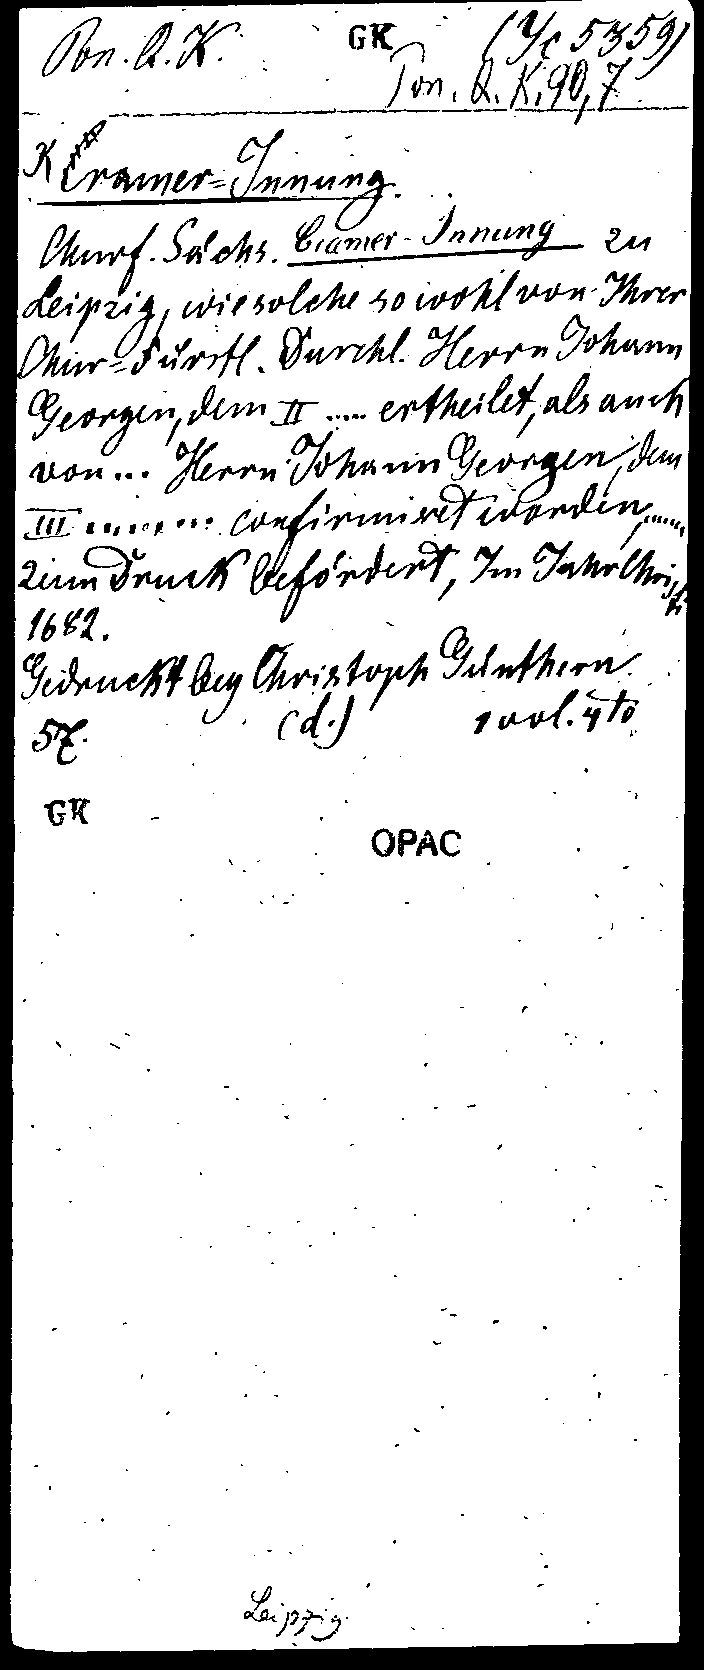 Pon. Q. K. GK (Yc 5359)
Pon. Q. K. 90,7
K Cramer-Innung.
Churf. Sächs. Cramer-Innung zu
Leipzig, wie solche so wohl von Ihrer
Chur-Fürstl. Durchl. Herrn Johann
Georgen, dem II .... ertheilet, als auch
von ... Herrn Johann Georgen, dem
III ........ confirmiret worden, .....
zum Druck befördert, Im Jahr Christi
1682.
Gedruckt bey Christoph Günthern.
(d.) 1 vol. 4to
GK
OPAC
Leipzig.